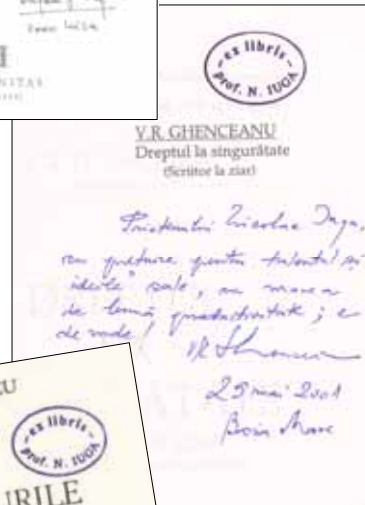 Ioan Miza
NITAS
ex libris
prof. N. IUGA
V.R. GHENCEANU
Dreptul la singurătate
(Scriitor la ziar)
Prietenului Nicolae Iuga,
cu prețuire pentru talentul și
ideile sale, cu
de bună productivitate; e
de unde!
25 mai 2001
Baia Mare
U
ex libris
prof. N. IUGA
URILE